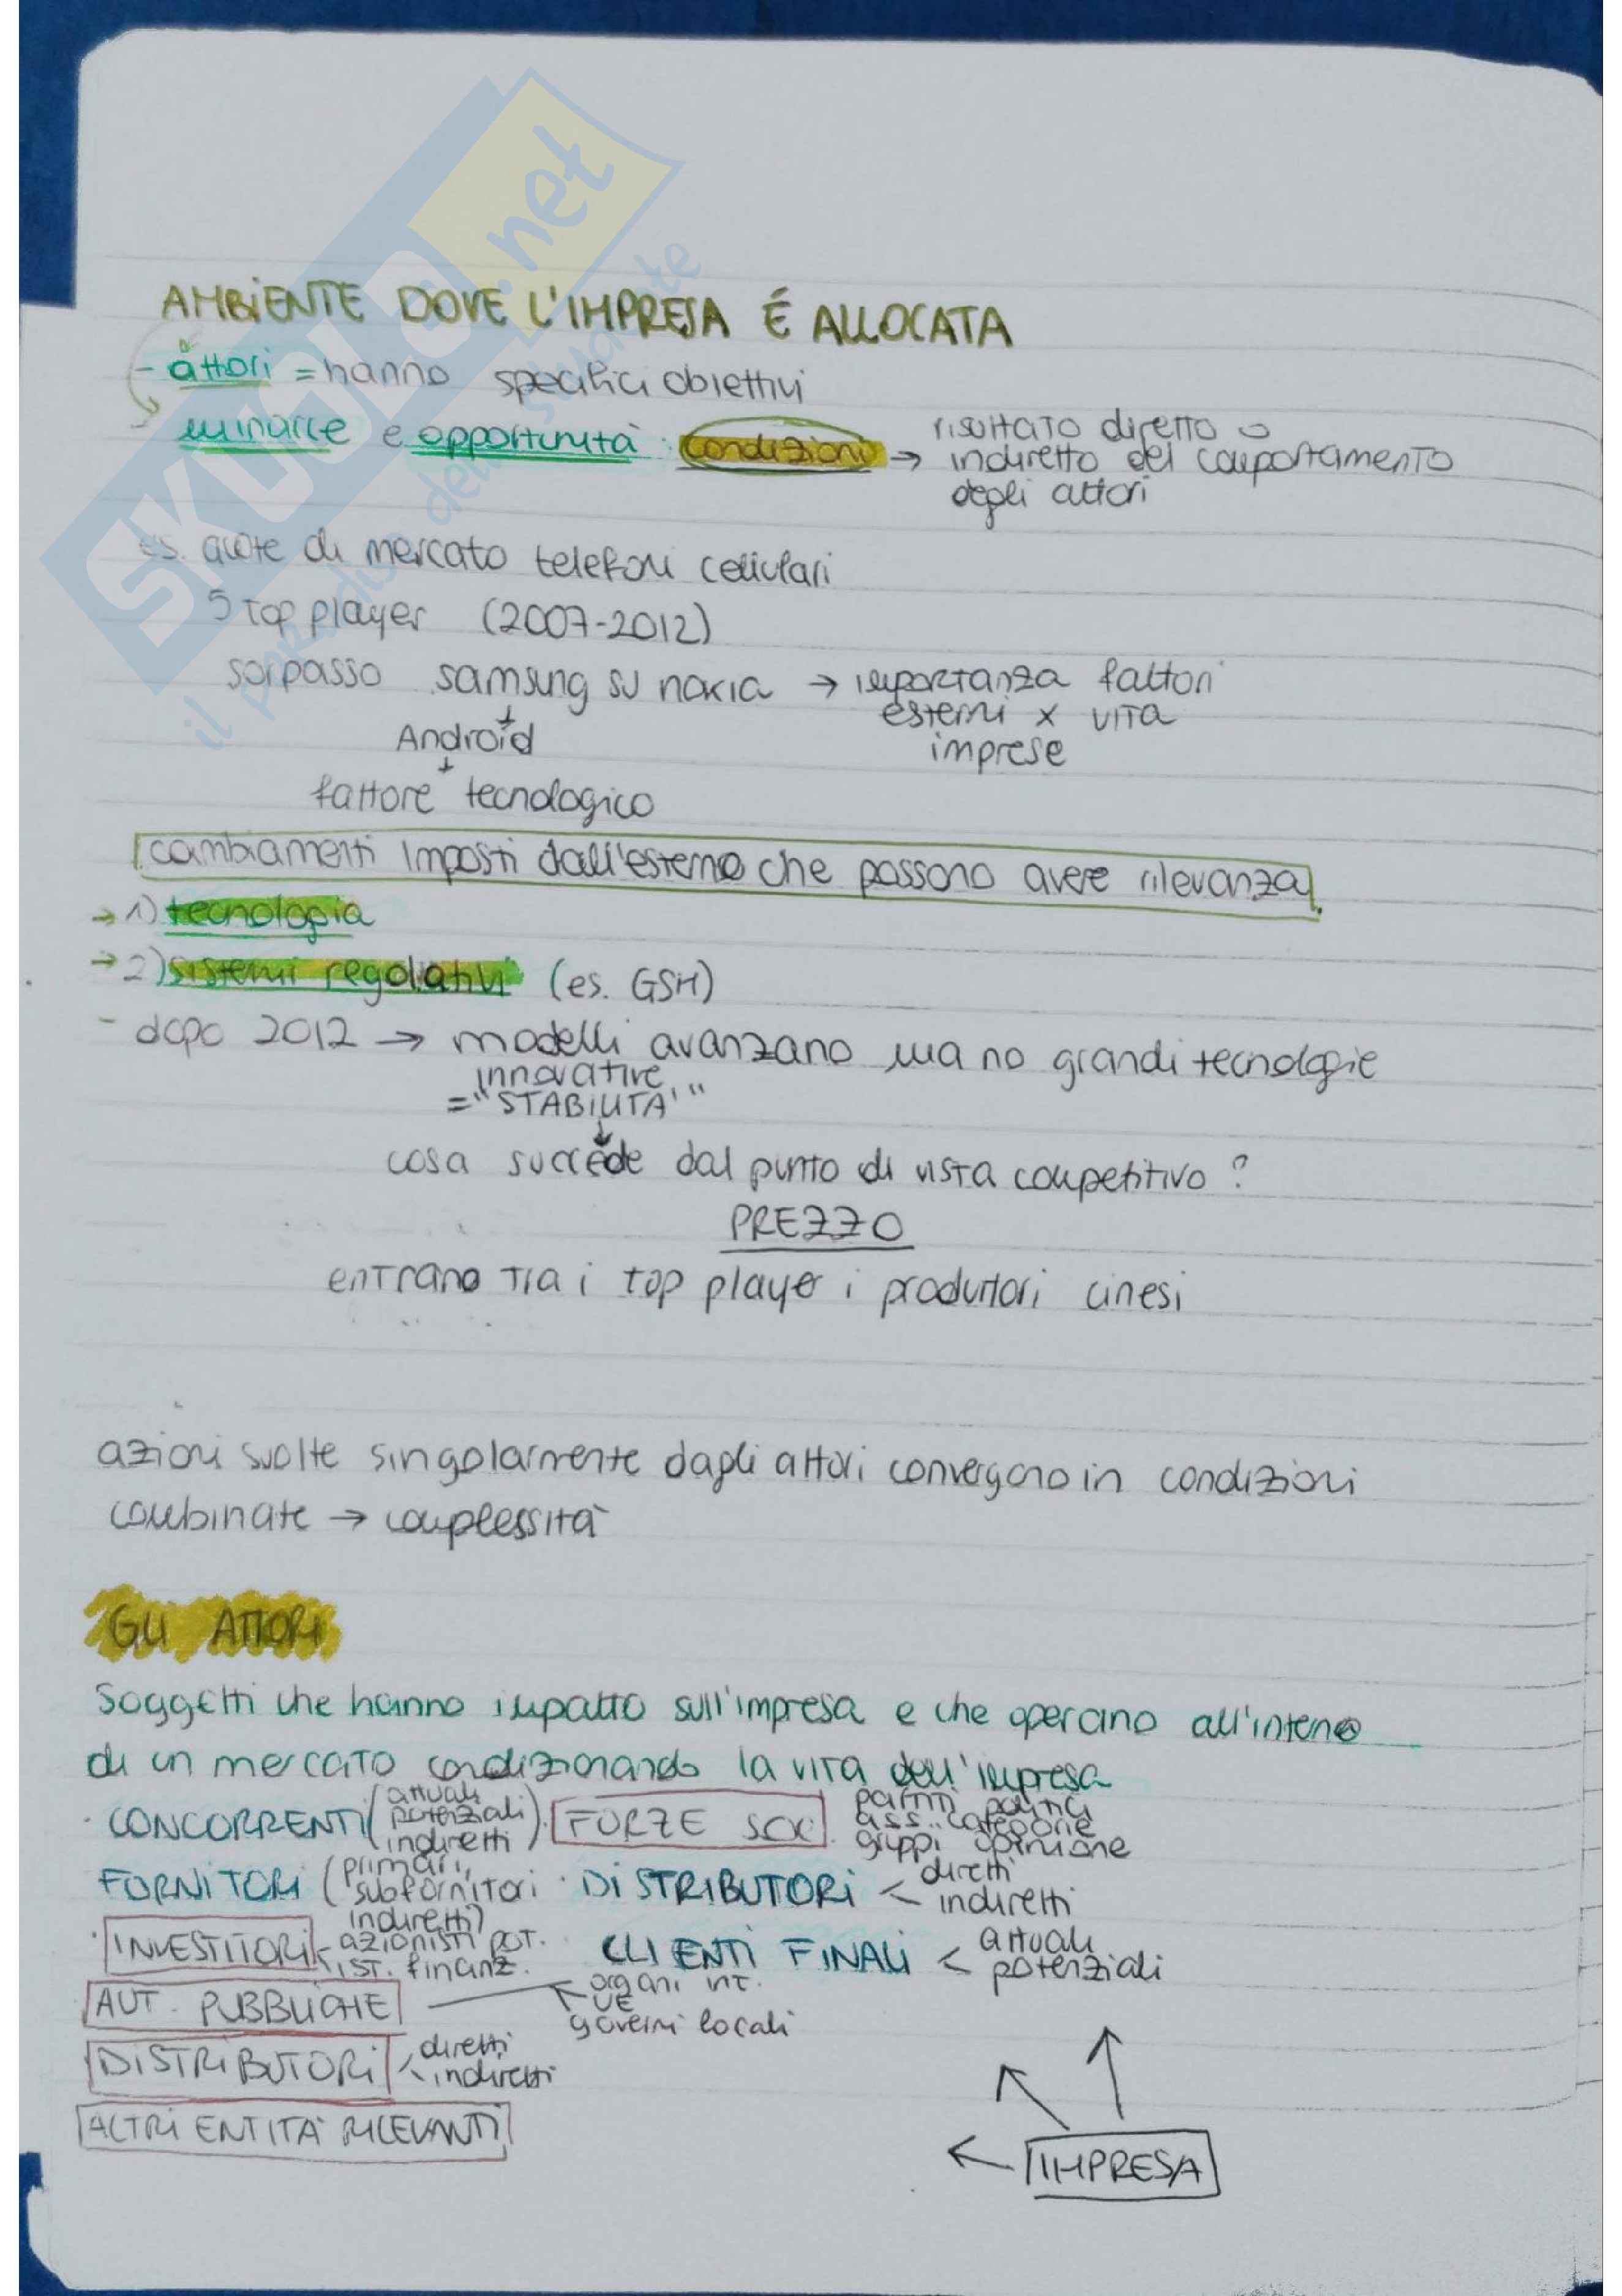 SKUOLA.net
il paradiso dello studente
AMBIENTE DOVE L'IMPRESA É ALLOCATA
- attori = hanno specifici obiettivi
minacce e opportunità : condizioni → risultato diretto o
indiretto del comportamento
degli attori
es. quote di mercato telefoni cellulari
5 top player (2007-2012)
sorpasso samsung su nokia → importanza fattori
esterni x vita
imprese
Android
fattore tecnologico
cambiamenti imposti dall'esterno che possono avere rilevanza
→ 1) tecnologia
→ 2) sistemi regolativi (es. GSM)
- dopo 2012 → modelli avanzano ma no grandi tecnologie
innovative
= "STABILITA'"
cosa succede dal punto di vista competitivo ?
PREZZO
entrano tra i top player i produttori cinesi
azioni svolte singolarmente dagli attori convergono in condizioni
combinate → complessità
GLI ATTORI
Soggetti che hanno impatto sull'impresa e che operano all'interno
di un mercato condizionando la vita dell'impresa
· CONCORRENTI (attuali
potenziali
indiretti) · FORZE SOC. partiti politici
ass. categorie
gruppi opinione
FORNITORI (primari,
subfornitori
indiretti) · DISTRIBUTORI < diretti
indiretti
· INVESTITORI < azionisti pot.
ist. finanz. CLIENTI FINALI < attuali
potenziali
AUT. PUBBLICHE organi int.
UE
governi locali
DISTRIBUTORI < diretti
indiretti
ALTRI ENTITA' RILEVANTI
IMPRESA